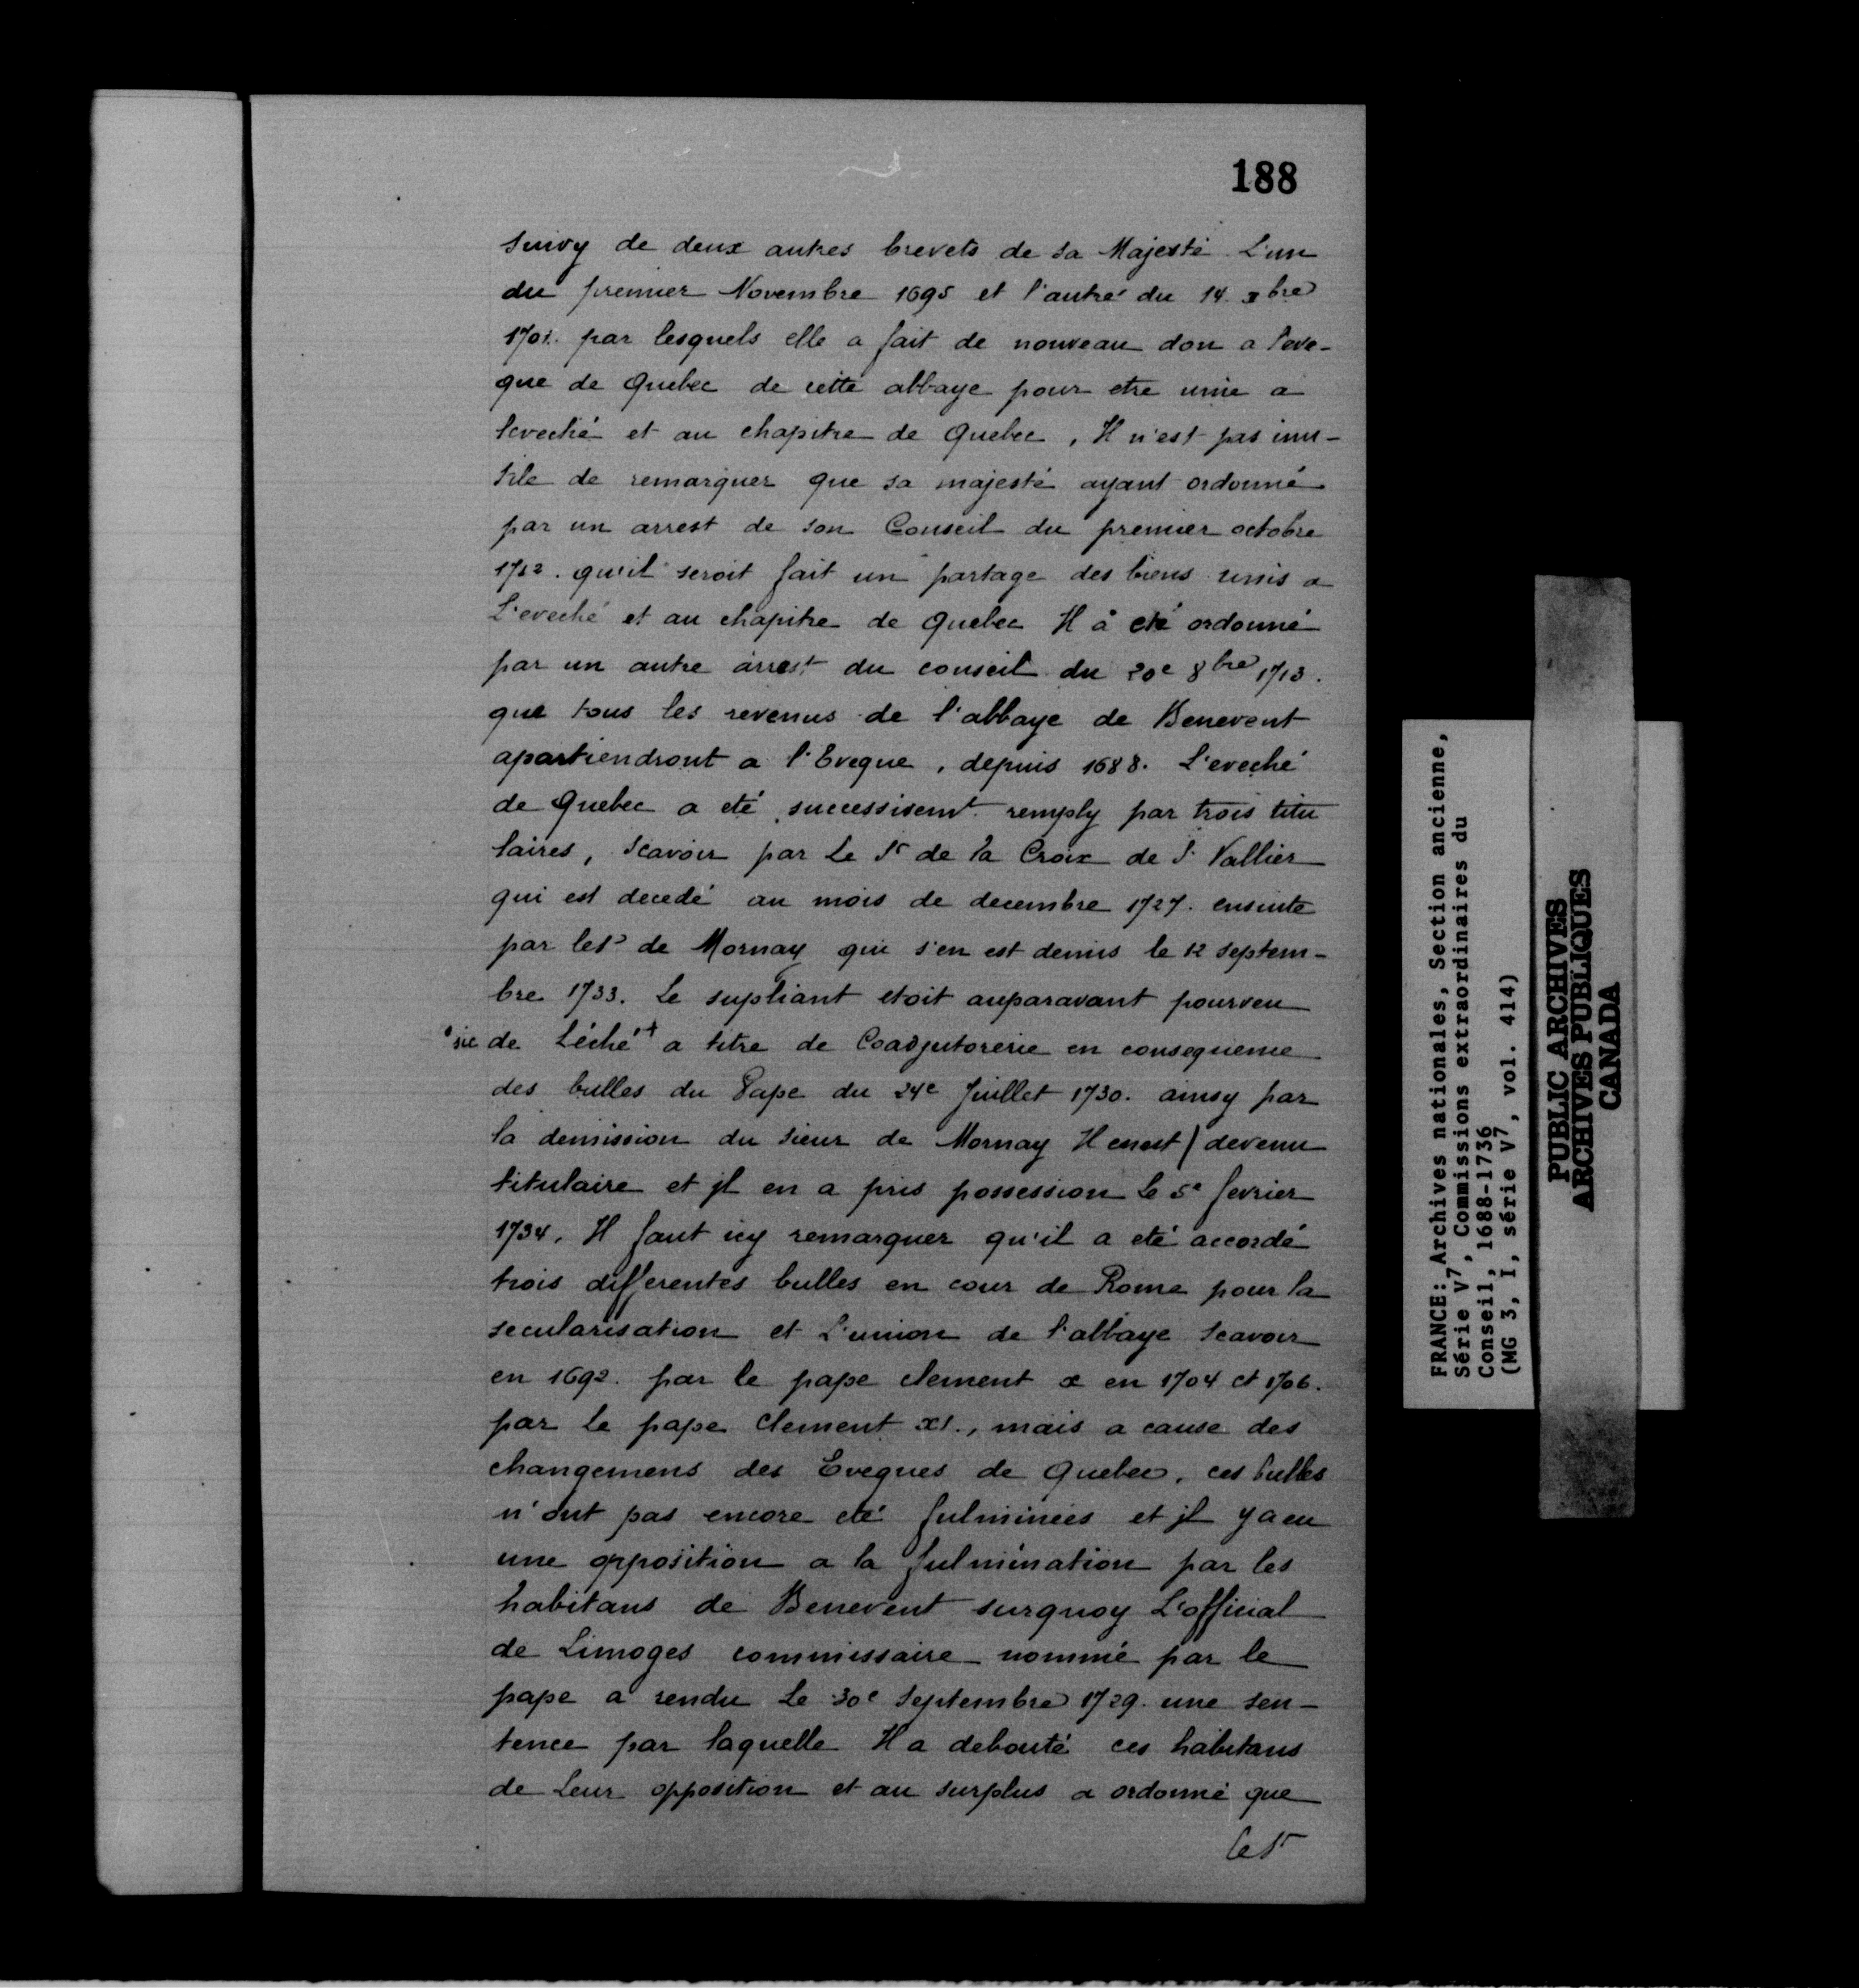 188
suivy de deux autres brevets de sa Majesté L'un
du premier Novembre 1695 et l'autre du 14 xbre
1701. par lesquels elle a fait de nouveau don a leve-
que de Quebec de cette abbaye pour etre unie a
leveché et au chapitre de Quebec, Il n'est pas inu-
tile de remarquer que sa majesté ayant ordonné
par un arrest de son Conseil du premier octobre
1712. qu'il seroit fait un partage des biens unis a
L'eveché et au chapitre de Quebec Il à eté ordonné
par un autre arrest du conseil du 20e 8bre 1713.
que tous les revenus de l'abbaye de Benevent
apartiendront a l'Eveque, depuis 1688. L'eveché
de Quebec a eté successivemt remply par trois titu
laires, Scavoir par Le Sr de la Croix de St Vallier
qui est decedé au mois de decembre 1727. ensuite
par le Sr de Mornay qui s'en est demis le 12 septem-
bre 1733. Le supliant etoit auparavant pourveu
+sic de Léché+ a titre de Coadjutorerie en consequence
des bulles du Pape du 24e Juillet 1730. ainsy par
la demission du Sieur de Mornay Il enest) devenu
titulaire et jl en a pris possession le 5e fevrier
1734. Il faut icy remarquer qu'il a eté accordé
trois differentes bulles en cour de Rome pour la
secularisation et L'union de l'abbaye Scavoir
en 1692. par le pape clement x en 1704 et 1706.
par le pape Clement XI., mais a cause des
changemens des Eveques de Quebec, ces bulles
n'ont pas encore eté fulminées et jl y a eu
une opposition a la fulmination par les
habitans de Benevent surquoy L'official
de Limoges commissaire nommé par le
pape a rendu Le 30e Septembre 1729. une sen-
tence par laquelle Il a debouté ces habitans
de Leur opposition et au surplus a ordonné que
le Sr
FRANCE: Archives nationales, Section ancienne,
Série V7, Commissions extraordinaires du
Conseil, 1688-1736
(MG 3, I, série V7, vol. 414)
PUBLIC ARCHIVES
ARCHIVES PUBLIQUES
CANADA